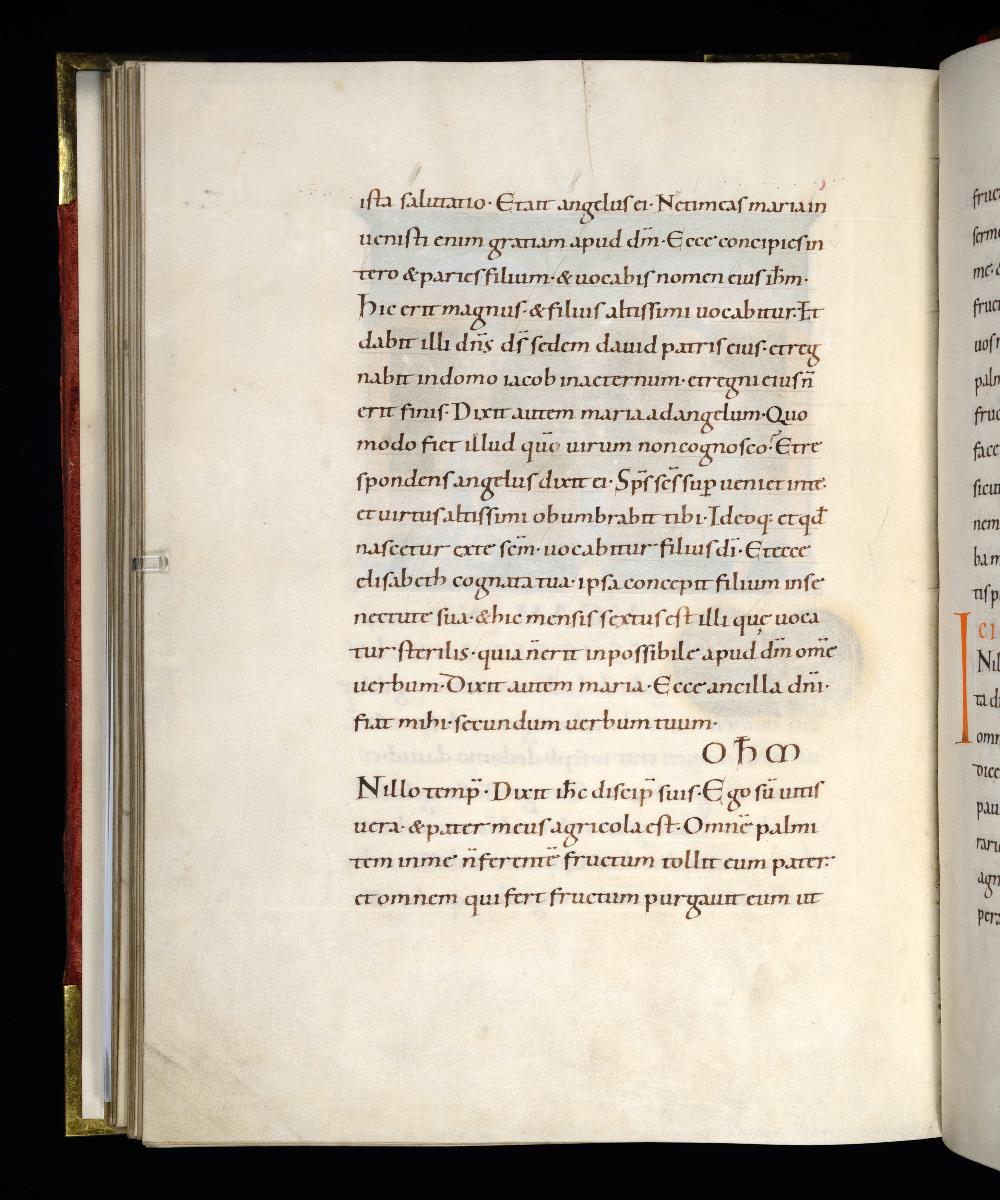 ista salutatio· Et ait angelus ei· Ne timeas maria in
uenisti enim gratiam apud dm̄· Ecce concipies in
tero & paries filium· & uocabis nomen eius ih̄m·
Hic erit magnus· & filius altissimi uocabitur· Et
dabit illi dn̄s ds̄ sedem dauid patris eius· et reg
nabit in domo iacob in aeternum· et regni eius n̄
erit finis· Dixit autem maria ad angelum· Quo
modo fiet illud quō uirum non cognosco? Et re
spondens angelus dixit ei· Sp̄s sc̄s sup̄ ueniet in te·
et uirtus altissimi obumbrabit tibi· Ideoq· et qd̄
nascetur ex te sc̄m· uocabitur filius dī· Et ecce
elisabeth cognata tua· ipsa concepit filium in se
nectute sua· & hic mensis sextus est illi quę uoca
tur sterilis· quia n̄ erit inpossibile apud dm̄ om̄e
uerbum· Dixit autem maria· Ecce ancilla dn̄i·
fiat mihi· secundum uerbum tuum·
Nillo temp̄· Dixit ih̄c discip̄ suis· Ego sū uitis
uera· & pater meus agricola est· Omnē palmi
tem in me n̄ ferentē fructum tollit eum pater·
et omnem qui fert fructum purgauit eum ut
fruc
me·
fruc
uos
palm
fruc
face
sicut
nem
ba m
tis p
CI
Nil
ta di
omn
dice
pau
rari
agn